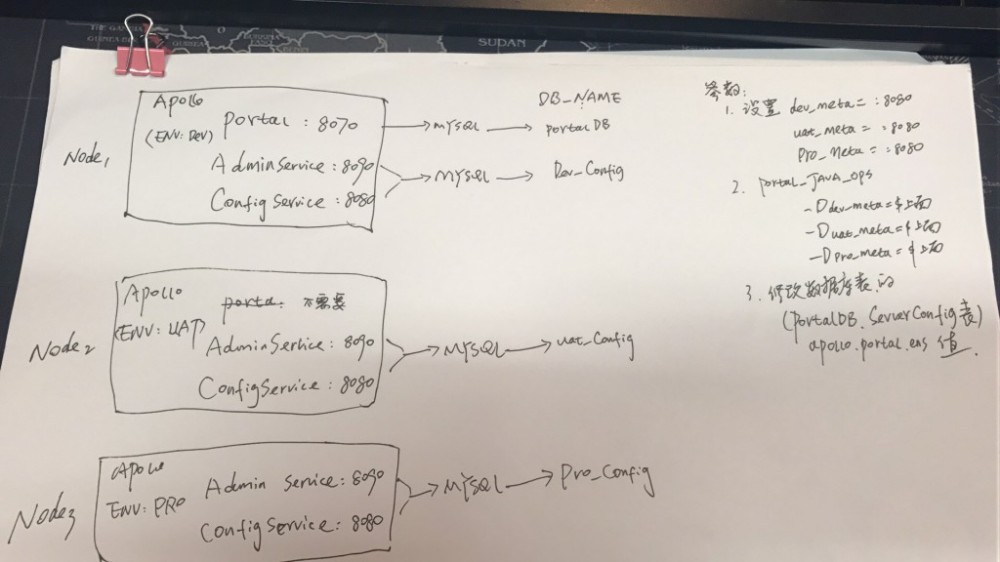 SUDAN
DB_NAME
Node1
Apollo
(ENV: DEV)
portal : 8070
mysql
portalDB
AdminService : 8090
ConfigService : 8080
mysql
Dev_Config
Node2
Apollo
(ENV: UAT)
portal: 不需要
AdminService : 8090
ConfigService : 8080
MySQL
uat_Config
Node3
Apollo
ENV: PRO
Admin Service: 8090
ConfigService: 8080
MySQL
Pro_Config
参数:
1. 设置 dev_meta= :8080
uat_meta= :8080
Pro_Meta= :8080
2. portal_JAVA_OPS
-Ddev_meta=$上面
-Duat_meta=$上面
-Dpro_meta=$上面
3. 修改数据库表的
(PortalDB.ServerConfig表)
apollo.portal.ens 值.